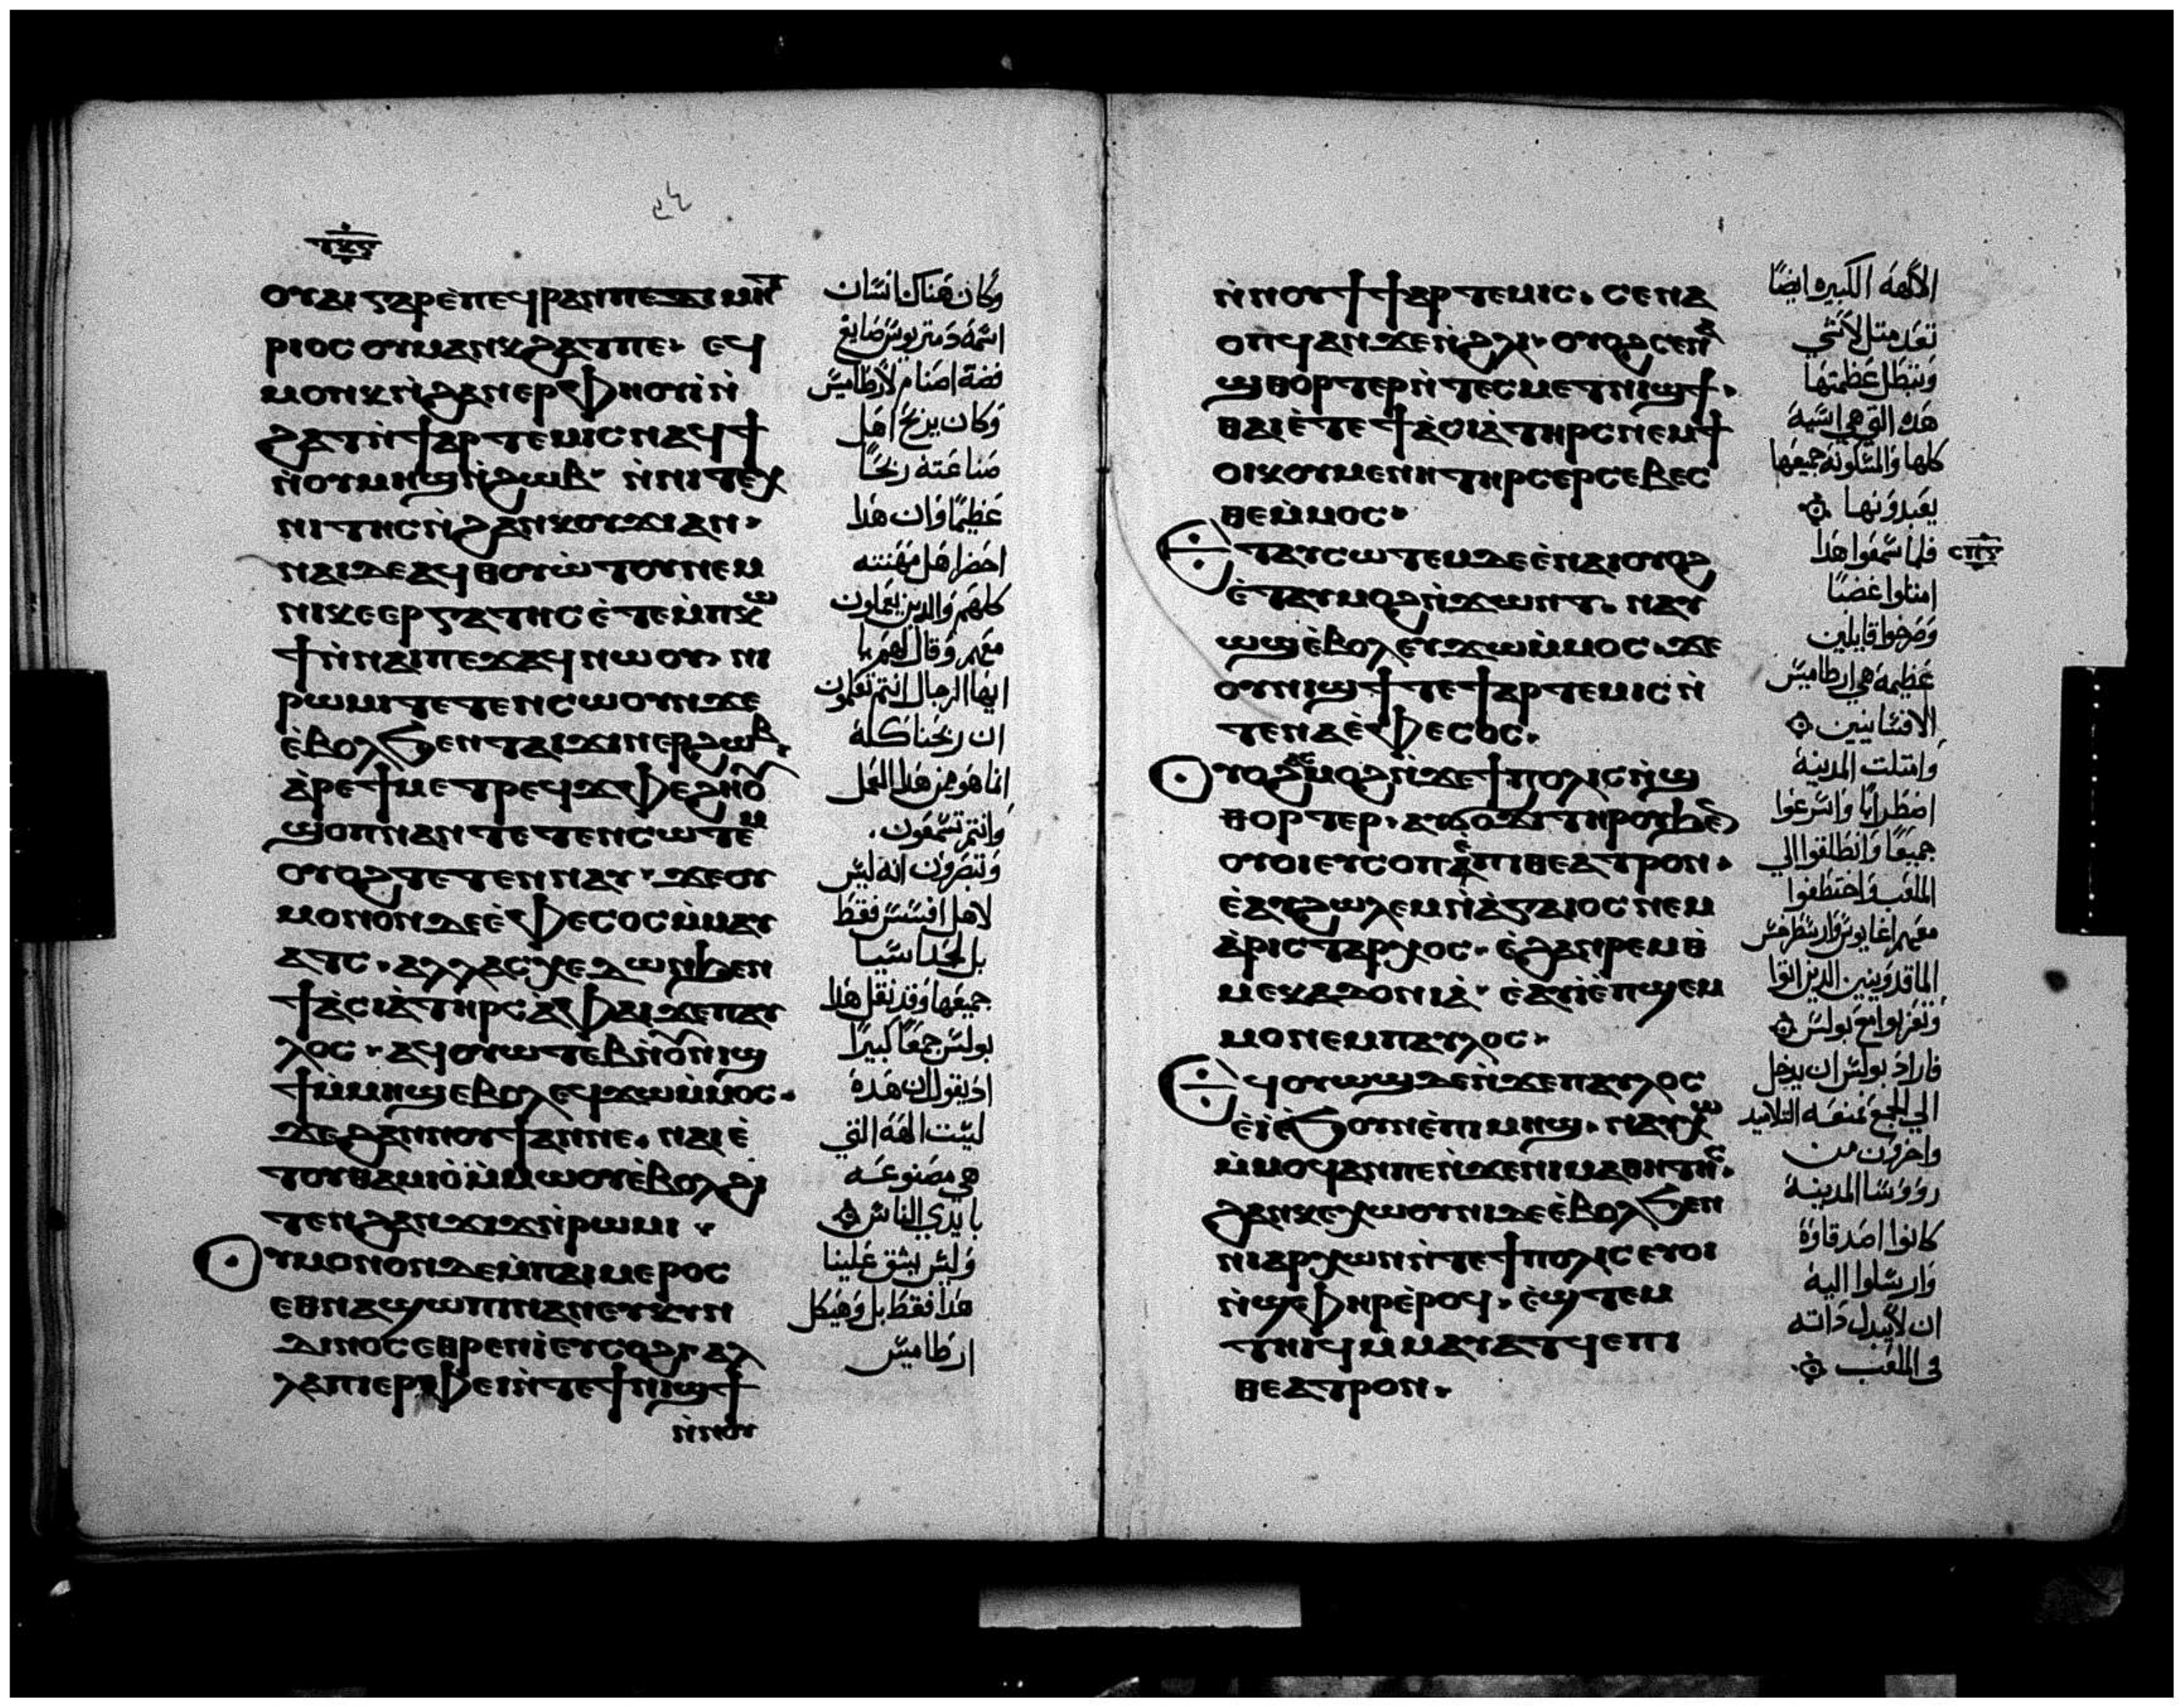 ⲟⲩⲁⲓ ⲅⲁⲣ ⲉ̀ⲡⲉϥⲣⲁⲛ ⲡⲉ ⲇⲓⲙⲏⲧ
ⲣⲓⲟⲥ ⲟⲩⲙⲁⲛⲕϩⲁⲧ ⲡⲉ· ⲉϥ
ⲙⲟⲛⲕ ⲛ̀ϩⲁⲛⲉⲣⲫⲏⲟⲩⲓ̀ ⲛ̀
ϩⲁⲧ ⲛ̀ϯⲁⲣⲧⲉⲙⲓⲥ ⲛⲁϥϯ
ⲛ̀ⲟⲩⲙⲏϣ ⲛ̀ϩⲱⲃ· ⲛ̀ⲛⲓⲧⲉⲭ
ⲛⲓⲧⲏⲥ ⲛ̀ϩⲁⲛⲕⲟⲩϫⲓ ⲁⲛ·
ⲛⲁⲓ ⲇⲉ ⲁϥⲑⲟⲩⲱ̀ⲧⲟⲩ ⲛⲉⲙ
ⲛⲓⲕⲉⲉⲣⲅⲁⲧⲏⲥ ⲉ̀ⲧⲉⲙ̀ⲡⲕⲱ
ϯ ⲛ̀ⲛⲁⲓ ⲡⲉϫⲁϥ ⲛⲱⲟⲩ· ⲛⲓ
ⲣⲱⲙⲓ ⲧⲉⲧⲉⲛⲥⲱⲟⲩⲛ ϫⲉ
ⲉ̀ⲃⲟⲗϧⲉⲛ ⲧⲁⲓϫⲓⲛⲉⲣϩⲱⲃ·
ⲁ̀ⲣⲉ ϯⲙⲉⲧⲣⲉϥϫⲫⲉϩⲛⲟ
ϣⲟⲡ ⲛⲁⲛ ⲧⲉⲧⲉⲛⲥⲱⲧⲉⲙ
ⲟⲩⲟϩ ⲧⲉⲧⲉⲛⲛⲁⲩ· ϫⲉ ⲟⲩ
ⲙⲟⲛⲟⲛ ⲇⲉ ⲉ̀ⲫⲉⲥⲟⲥ ⲙ̀ⲙⲁⲩ
ⲁⲧⲥ· ⲁⲗⲗⲁ ⲥⲭⲉⲇⲱⲛ ϧⲉⲛ
ϯⲁ̀ⲥⲓⲁ̀ ⲧⲏⲣⲥ ⲁ̀ⲫⲁⲓ ϫⲉ ⲡⲁⲩ
ⲗⲟⲥ· ⲁϥⲟⲩⲱⲧⲉⲃ ⲛ̀ⲟⲩⲛⲓϣ
ϯ ⲙ̀ⲙⲏϣ ⲉⲃⲟⲗ ⲉϥϫⲱ ⲙ̀ⲙⲟⲥ·
ϫⲉ ϩⲁⲛⲛⲟⲩϯ ⲁⲛ ⲛⲉ· ⲛⲁⲓ ⲉ̀
ⲧⲟⲩⲑⲁⲙⲓⲟ̀ ⲙ̀ⲙⲱⲟⲩ ⲉ̀ⲃⲟⲗϩⲓ
ⲧⲉⲛ ϩⲁⲛϫⲓϫ ⲛ̀ⲣⲱⲙⲓ·
ⲟⲩⲙⲟⲛⲟⲛ ⲇⲉ ⲙ̀ⲡⲁⲓⲙⲉⲣⲟⲥ
ⲉⲑⲛⲁϣⲱⲡⲓ ⲛⲁⲛ ⲉⲩⲕⲓⲛ
ⲇⲓⲛⲟⲥ ⲉⲑⲣⲉⲛⲓ̀ ⲉⲩⲥⲟϩⲓ· ⲁⲗ
ⲗⲁ ⲡⲓⲉⲣⲫⲉⲓ ⲛ̀ⲧⲉ ϯⲛⲓϣϯ
ⲛ̀ⲛⲟⲩ
وكان هناك انسان
اسمه دمتريوس صايغ
فضة اصنام لارطاميس
وكان يربح اهل
صناعته ربحًا
عظيمًا وان هذا
احضر اهل مهنته
كلهم والذين يعملون
معهم وقال لهم يا
ايها الرجال انتم تعلمون
ان ربحنا كله
انما هو من هذا العمل
وانتم تسمعون
وتبصرون انه ليس
لاهل افسس فقط
بل لحد اسيا
جميعها وقد نقل هذا
بولس جمعًا كبيرًا
اذ يقول ان هذه
ليست الهة التي
هي مصنوعه
بايدي الناس
وليس يشق علينا
هذا فقط بل وهيكل
ارطاميس
ⲛ̀ⲛⲟⲩϯ ϯⲁⲣⲧⲉⲙⲓⲥ· ⲥⲉⲛⲁ
ⲟⲡϥ ⲁⲛ ϫⲉ ⲛ̀ϩⲗⲓ· ⲟⲩⲟϩ ⲥⲉⲛⲁ
ϣⲑⲟⲣⲧⲉⲣ ⲛ̀ⲧⲉⲥⲙⲉⲧⲛⲓϣϯ·
ⲑⲁⲓ ⲉ̀ⲧⲉ ϯⲁ̀ⲥⲓⲁ̀ ⲧⲏⲣⲥ ⲛⲉⲙ ϯ
ⲟⲓⲕⲟⲩⲙⲉⲛⲏ ⲧⲏⲣⲥ ⲉⲣⲥⲉⲃⲉⲥ
ⲑⲉ ⲙ̀ⲙⲟⲥ·
ⲉⲧⲁⲩⲥⲱⲧⲉⲙ ⲇⲉ ⲉ̀ⲛⲁⲓ ⲟⲩⲟϩ
ⲉ̀ⲧⲁⲩⲙⲟϩ ⲛ̀ϫⲱⲛⲧ· ⲛⲁⲩ
ⲱϣ ⲉ̀ⲃⲟⲗ ⲉⲩϫⲱ ⲙ̀ⲙⲟⲥ· ϫⲉ
ⲟⲩⲛⲓϣϯ ⲧⲉ ϯⲁⲣⲧⲉⲙⲓⲥ ⲛ̀
ⲧⲉ ⲛⲁ ⲉ̀ⲫⲉⲥⲟⲥ·
ⲟⲩⲟϩ ⲁⲥⲙⲟϩ ⲛ̀ϫⲉ ϯⲡⲟⲗⲓⲥ ⲛ̀ϣ
ⲑⲟⲣⲧⲉⲣ· ⲁⲩϭⲟϫⲓ ⲧⲏⲣⲟⲩ ϧⲉⲛ
ⲟⲩⲟⲓ ⲉⲩⲥⲟⲡ ⲉ̀ⲡⲓⲑⲉⲁⲧⲣⲟⲛ·
ⲉ̀ⲁⲩϩⲱⲗⲉⲙ ⲛ̀ⲁ̀ⲅⲁⲓⲟⲥ ⲛⲉⲙ
ⲁ̀ⲣⲓⲥⲧⲁⲣⲭⲟⲥ· ⲉ̀ϩⲁⲛⲣⲉⲙⲑ̀
ⲙⲉⲕⲁⲇⲟⲛⲓⲁ̀· ⲉ̀ⲁⲩⲓ̀ ⲉ̀ⲡϣⲉⲙ
ⲙⲟ ⲛⲉⲙ ⲡⲁⲩⲗⲟⲥ·
ⲉϥⲟⲩⲱϣ ⲇⲉ ⲛ̀ϫⲉ ⲡⲁⲩⲗⲟⲥ
ⲉ̀ⲓ̀ ⲉ̀ϧⲟⲩⲛ ⲉ̀ⲡⲓⲙⲏϣ· ⲛⲁⲩⲭⲱ
ⲙ̀ⲙⲟϥ ⲁⲛ ⲡⲉ ⲛ̀ϫⲉ ⲛⲓⲙⲁⲑⲏⲧⲏⲥ·
ϩⲁⲛⲕⲉⲭⲱⲟⲩⲛⲓ ⲇⲉ ⲉ̀ⲃⲟⲗϧⲉⲛ
ⲛⲓⲁⲣⲭⲱⲛ ⲛ̀ⲧⲉ ϯⲡⲟⲗⲓⲥ ⲉⲩⲟⲓ
ⲛ̀ϣⲫⲏⲣ ⲉ̀ⲣⲟϥ· ⲉ̀ϣⲧⲉⲙ
ⲧⲏⲓϥ ⲙ̀ⲙⲁⲩⲁⲧϥ ⲉⲡⲓ
ⲑⲉⲁⲧⲣⲟⲛ·
الالهة الكبيره ايضًا
تعد مثل لا شي
وتبطل عظمتها
هذه التي هي اسية
كلها والمسكونة جميعها
يعبدونها
فلما سمعوا هذا
امتلوا غضبًا
وصرخوا قايلين
عظيمة هي ارطاميس
الافسسانيين
وامتلت المدينة
اضطرابًا واسرعوا
جميعًا وانطلقوا الي
الملعب واختطفوا
معهم اغايوس وارسطرخس
الماقدونيين الذين اتوا
وتغربوا مع بولس
فاراد بولس ان يدخل
الي الجمع فمنعه التلاميد
واخرون من
رووسا المدينة
كانوا اصدقاوة
وارسلوا اليه
ان لا يبدل ذاته
في الملعب